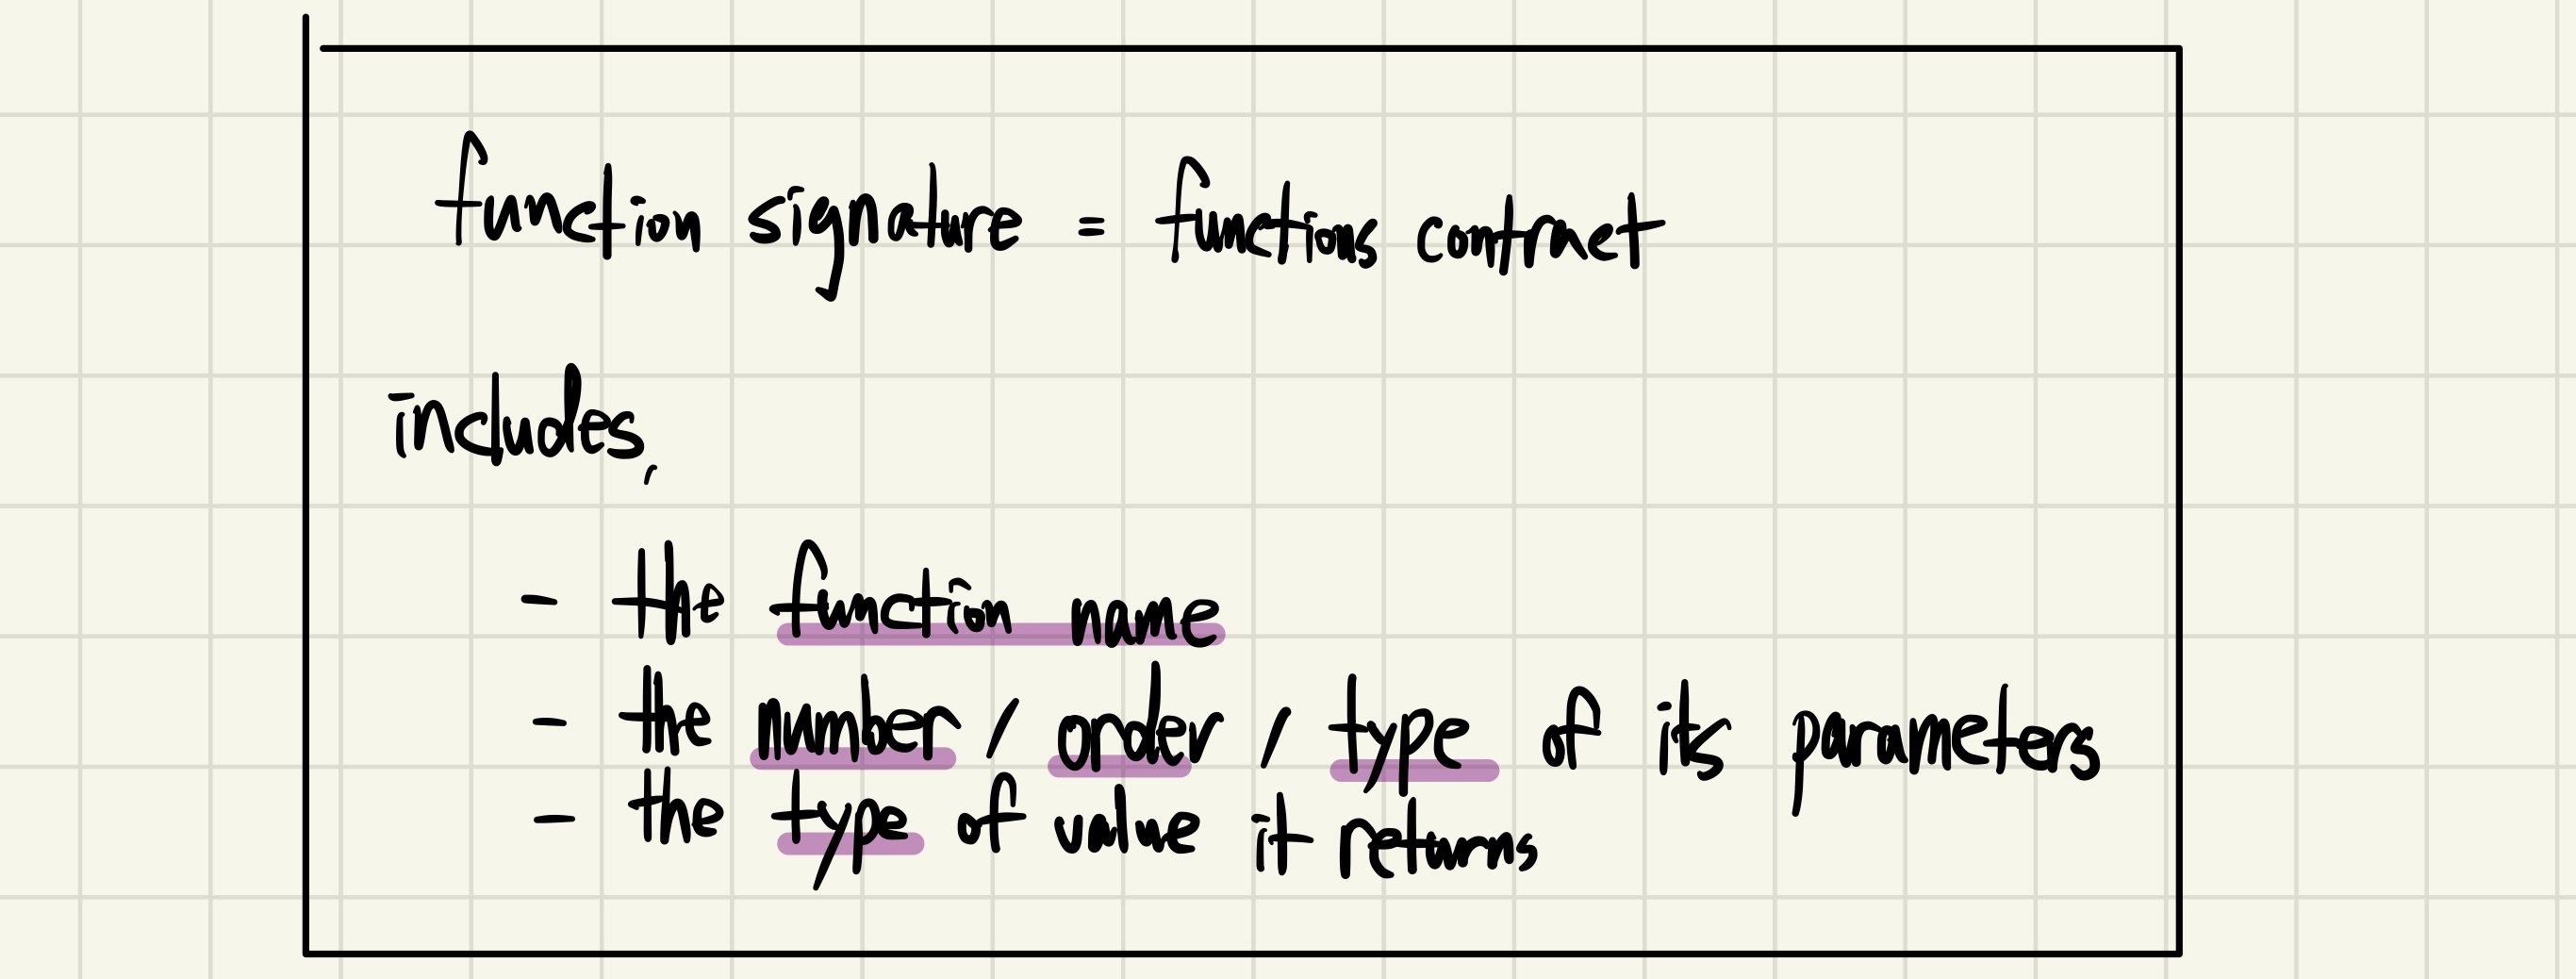 function signature = functions contract
includes,
- the function name
- the number / order / type of its parameters
- the type of value it returns